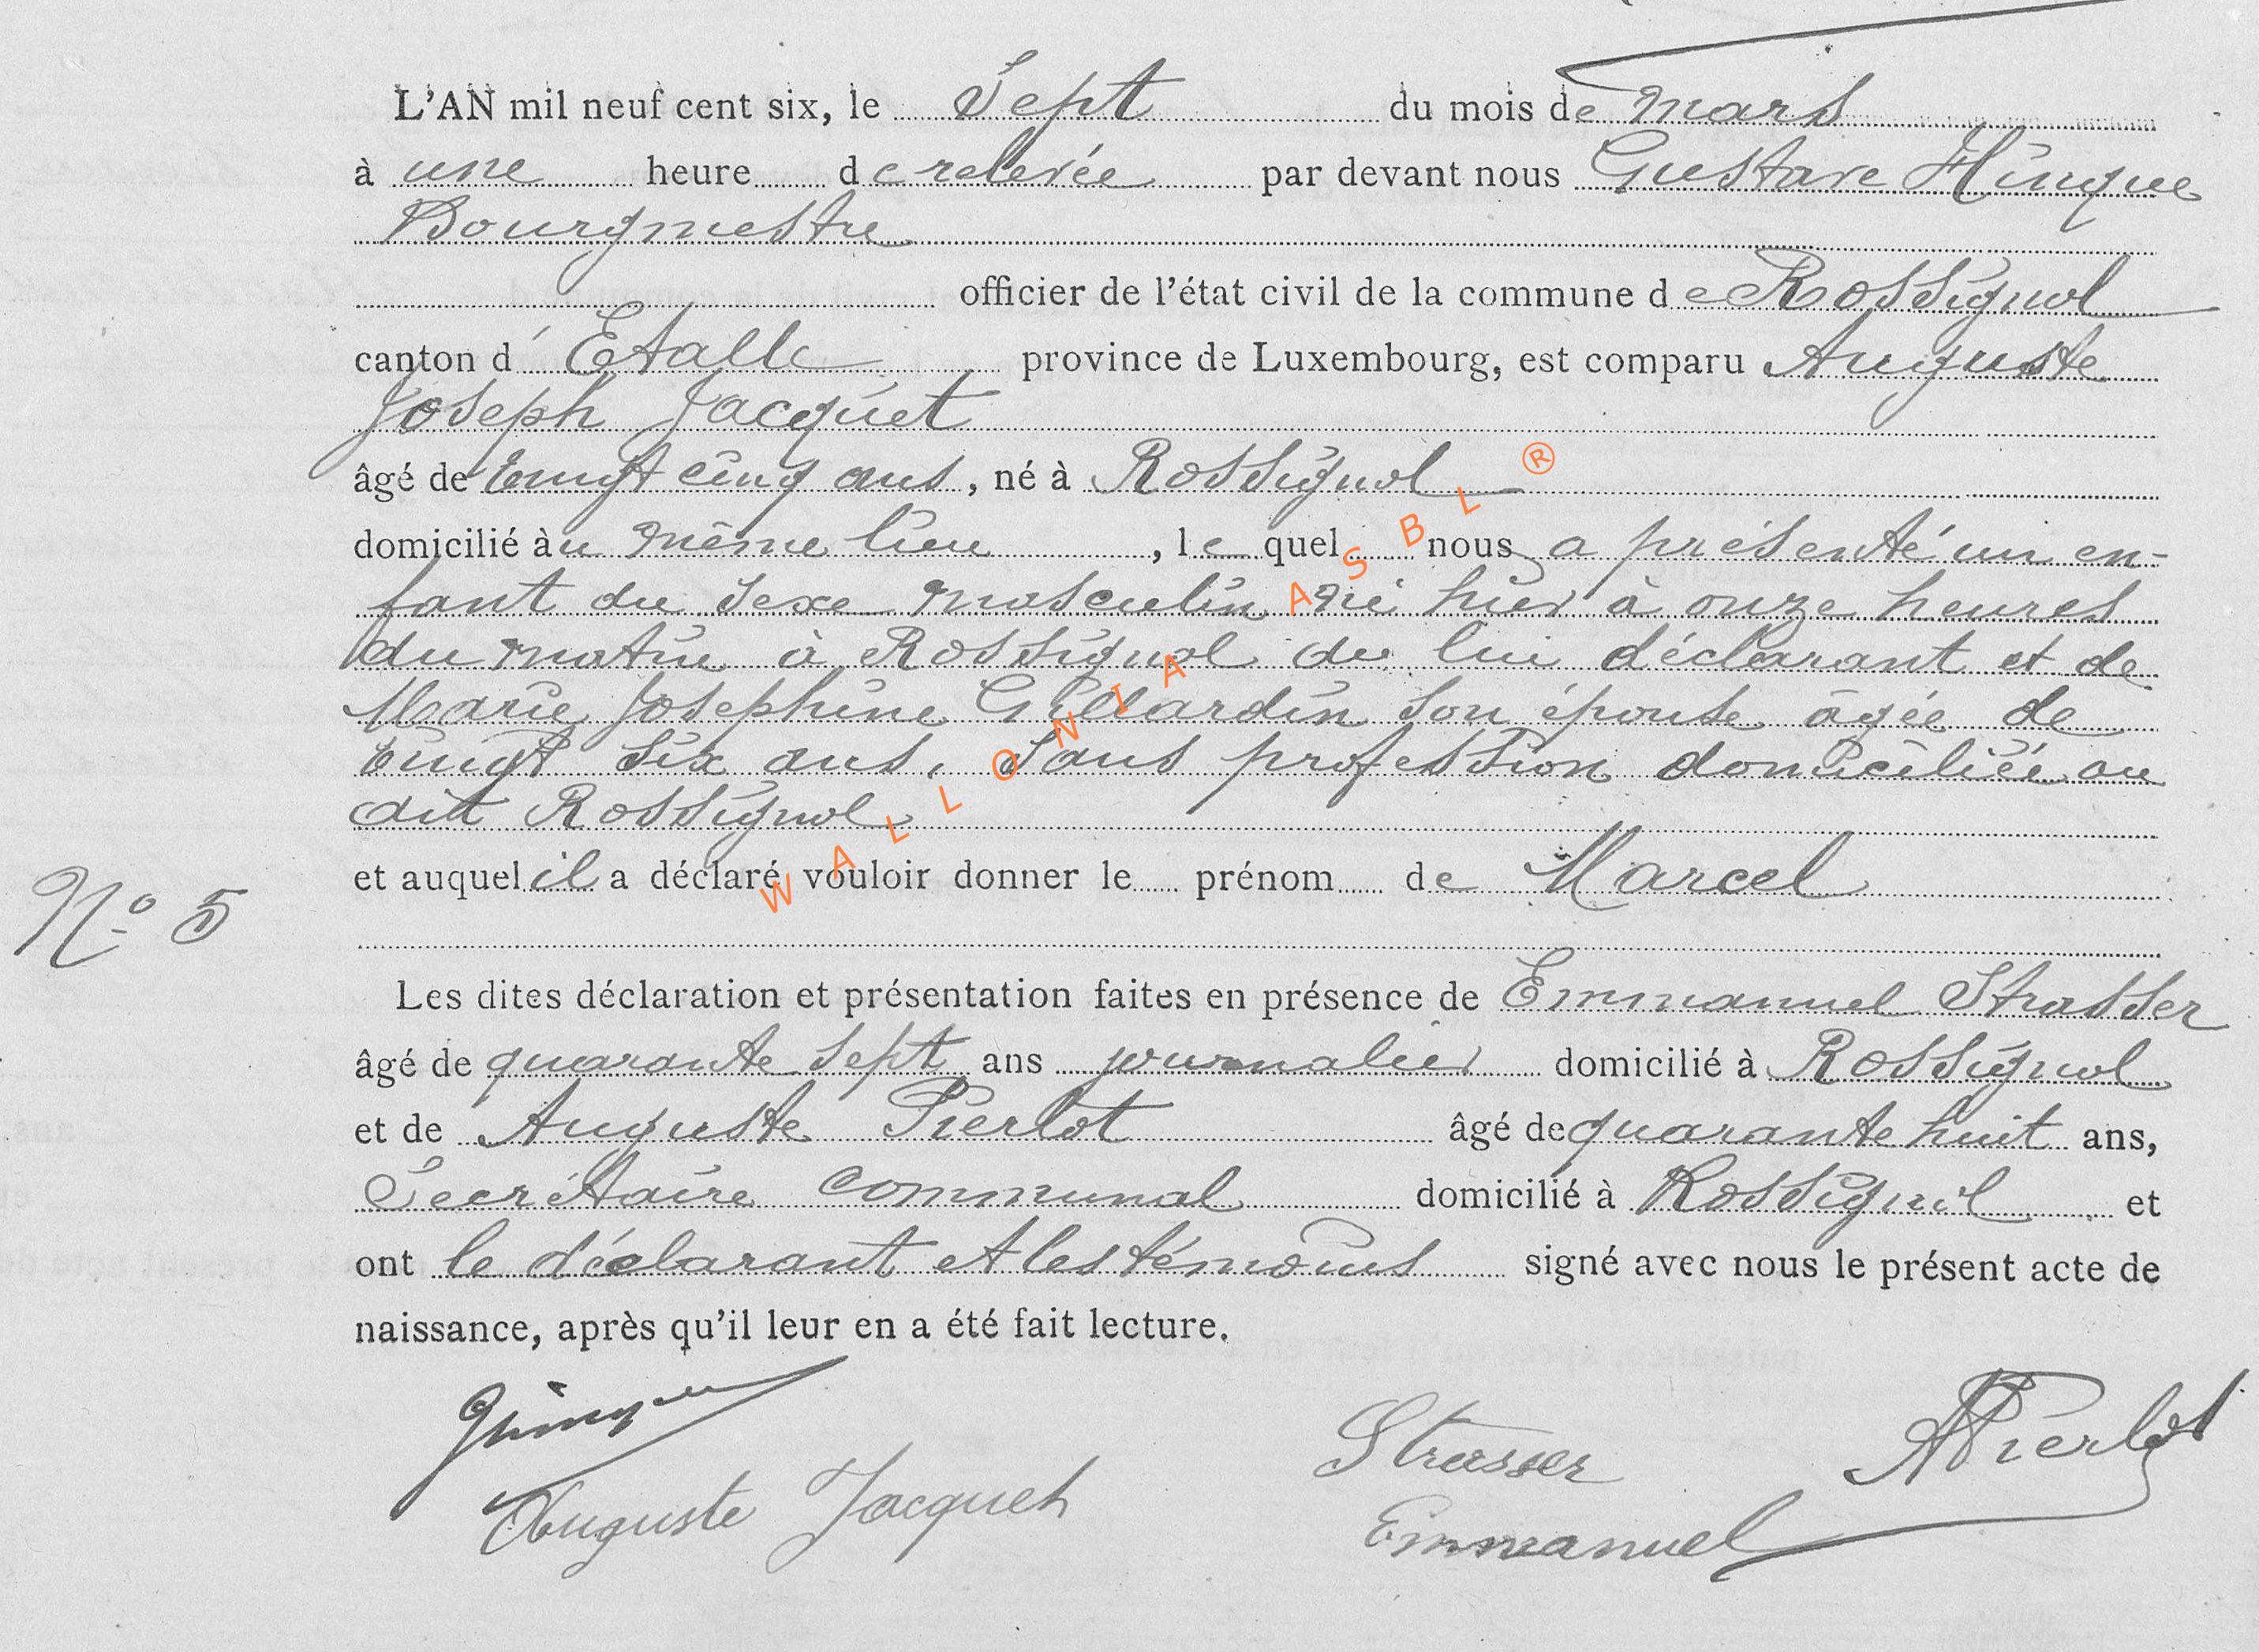 L'AN mil neuf cent six, le Sept du mois de mars
à une heure de relevée par devant nous Gustave Hinque
Bourgmestre
officier de l'état civil de la commune de Rossignol
canton d'Etalle province de Luxembourg, est comparu Auguste
Joseph Jacquet
âgé de vingt cinq ans, né à Rossignol
domicilié au même lieu, lequel nous a présenté un en-
fant du sexe masculin né hier à onze heures
du matin à Rossignol de lui déclarant et de
Marie Joséphine Gillardin son épouse âgée de
vingt six ans, sans profession domiciliée au
dit Rossignol
et auquel il a déclaré vouloir donner le prénom de Marcel
N° 5
Les dites déclaration et présentation faites en présence de Emmanuel Strasser
âgé de quarante sept ans journalier domicilié à Rossignol
et de Auguste Pierlot âgé de quarante huit ans,
Secrétaire communal domicilié à Rossignol et
ont le déclarant et les témoins signé avec nous le présent acte de
naissance, après qu'il leur en a été fait lecture.
Strasser APierlot
Auguste Jacquet Emmanuel
WALLONIA ASBL ®